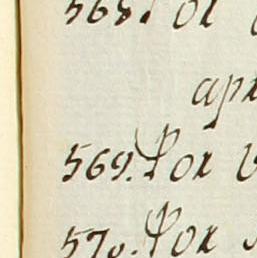 568. Por
apr
569. Por
570. Por